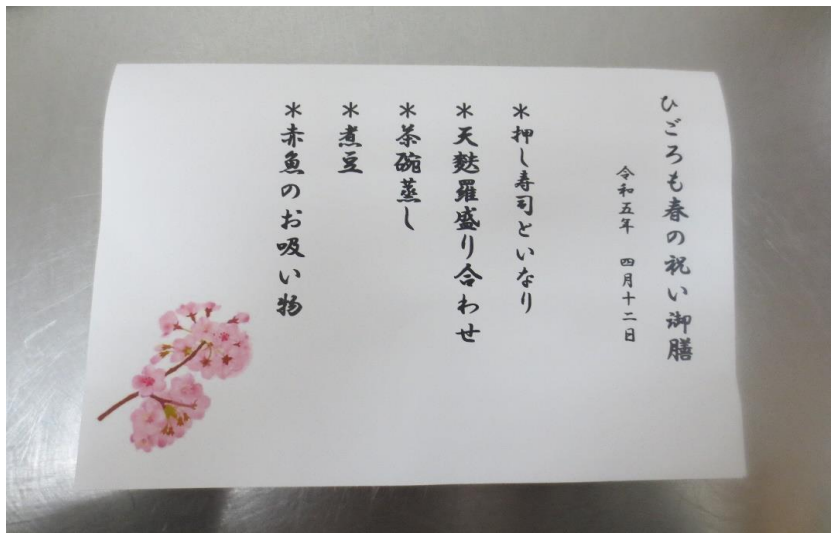 ひごろも春の祝い御膳
令和五年 四月十二日
＊押し寿司といなり
＊天麩羅盛り合わせ
＊茶碗蒸し
＊煮豆
＊赤魚のお吸い物